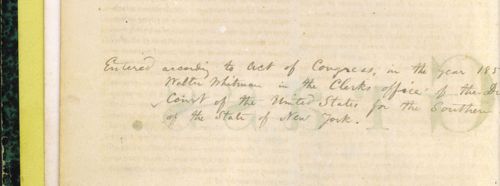 Entered according to act of Congress, in the year 185
Walter Whitman in the Clerks office of the Di
Court of the United States for the Southern
of the State of New York.